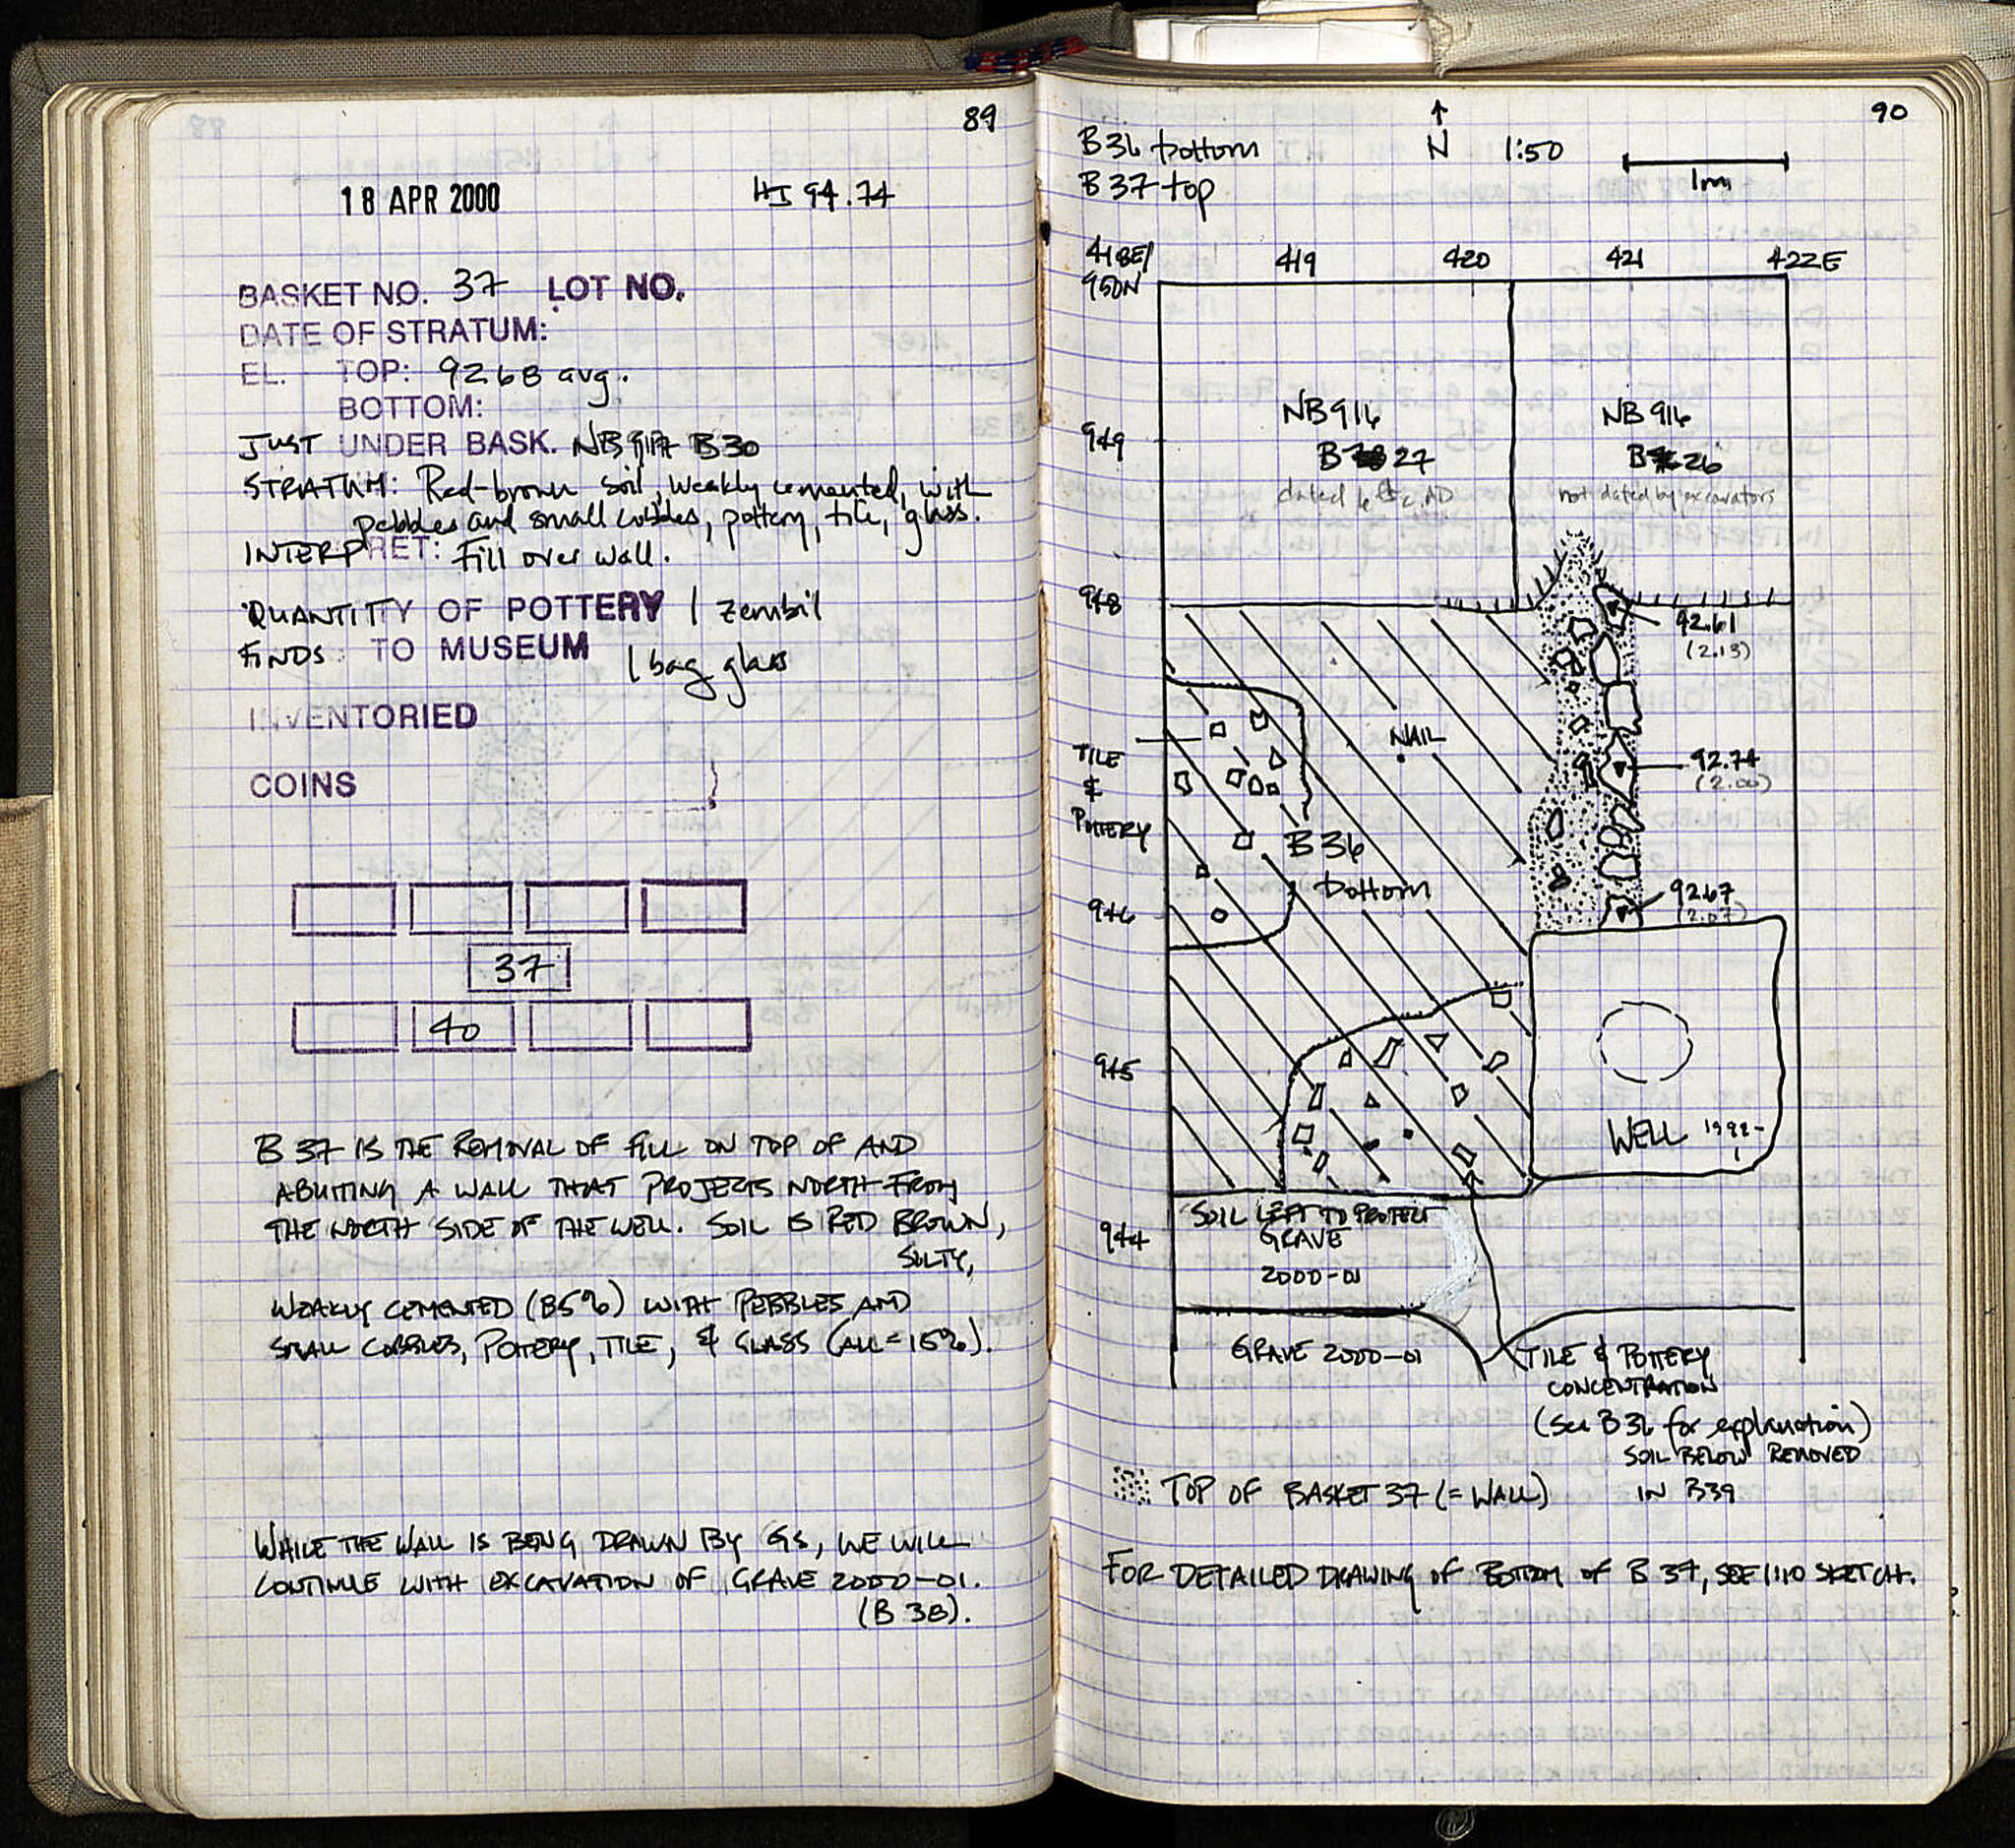 89
18 APR 2000 HI 94.74
BASKET NO. 37 LOT NO.
DATE OF STRATUM:
EL. TOP: 92.68 avg.
BOTTOM:
JUST UNDER BASK. NB 917 B30
STRATUM: Red-brown soil, weakly cemented, with
pebbles and small cobbles, pottery, tile, glass.
INTERPRET: Fill over wall.
QUANTITY OF POTTERY 1 zembil
FINDS TO MUSEUM 1 bag glass
INVENTORIED
COINS
37
40
B 37 IS THE REMOVAL OF FILL ON TOP OF AND
ABUTTING A WALL THAT PROJECTS NORTH FROM
THE NORTH SIDE OF THE WELL. SOIL IS RED BROWN,
SILTY,
WEAKLY CEMENTED (85%) WITH PEBBLES AND
SMALL COBBLES, POTTERY, TILE, & GLASS (ALL = 15%).
WHILE THE WALL IS BEING DRAWN BY GS, WE WILL
CONTINUE WITH EXCAVATION OF GRAVE 2000-01.
(B 38).
90
B36 bottom N 1:50 1m
B 37 top
418E/ 419 420 421 422E
950N
NB 916 NB 916
949
B 27 B 26
dated 6th c. AD not dated by excavators
948
92.61
(2.13)
NAIL
TILE
&
POTTERY
92.74
(2.00)
B36
bottom
946
92.67
(2.07)
945
WELL 1998-
SOIL LEFT TO PROTECT
944
GRAVE
2000-01
GRAVE 2000-01
TILE & POTTERY
CONCENTRATION
(See B36 for explanation)
SOIL BELOW REMOVED
IN B39
TOP OF BASKET 37 (= WALL)
FOR DETAILED DRAWING OF BOTTOM OF B 37, SEE 1:10 SKETCH.